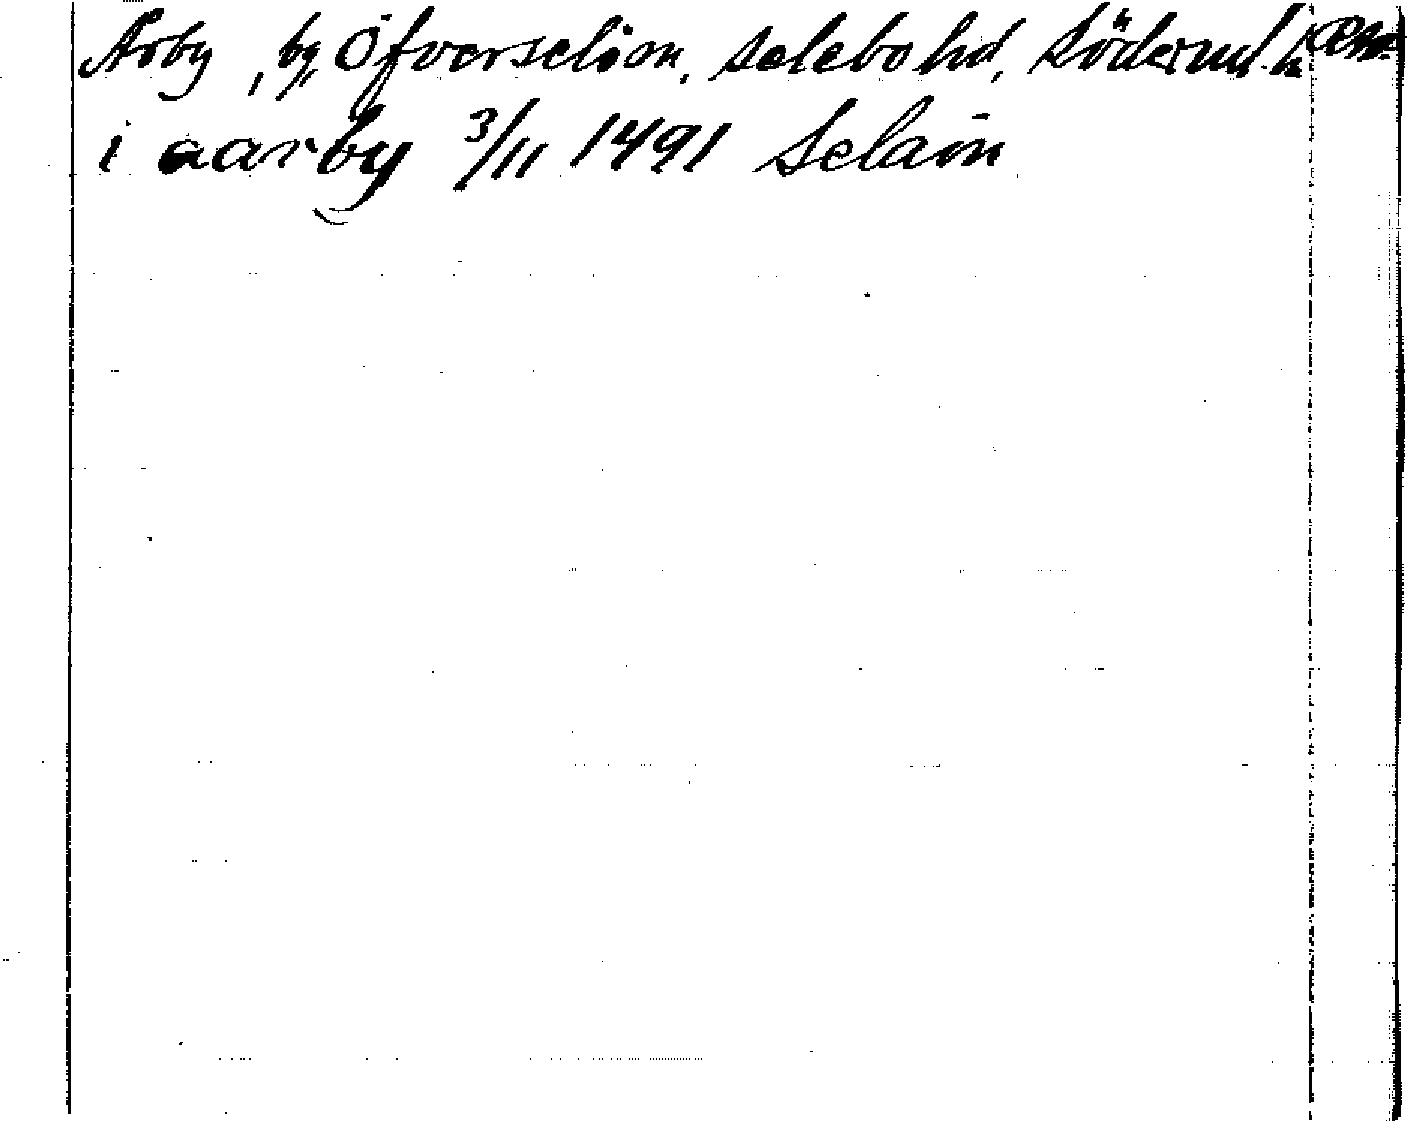 Årby, by, Öfverselöm, Selebo hd, Söderml.
i aarby 3/11 1491 Selaöm